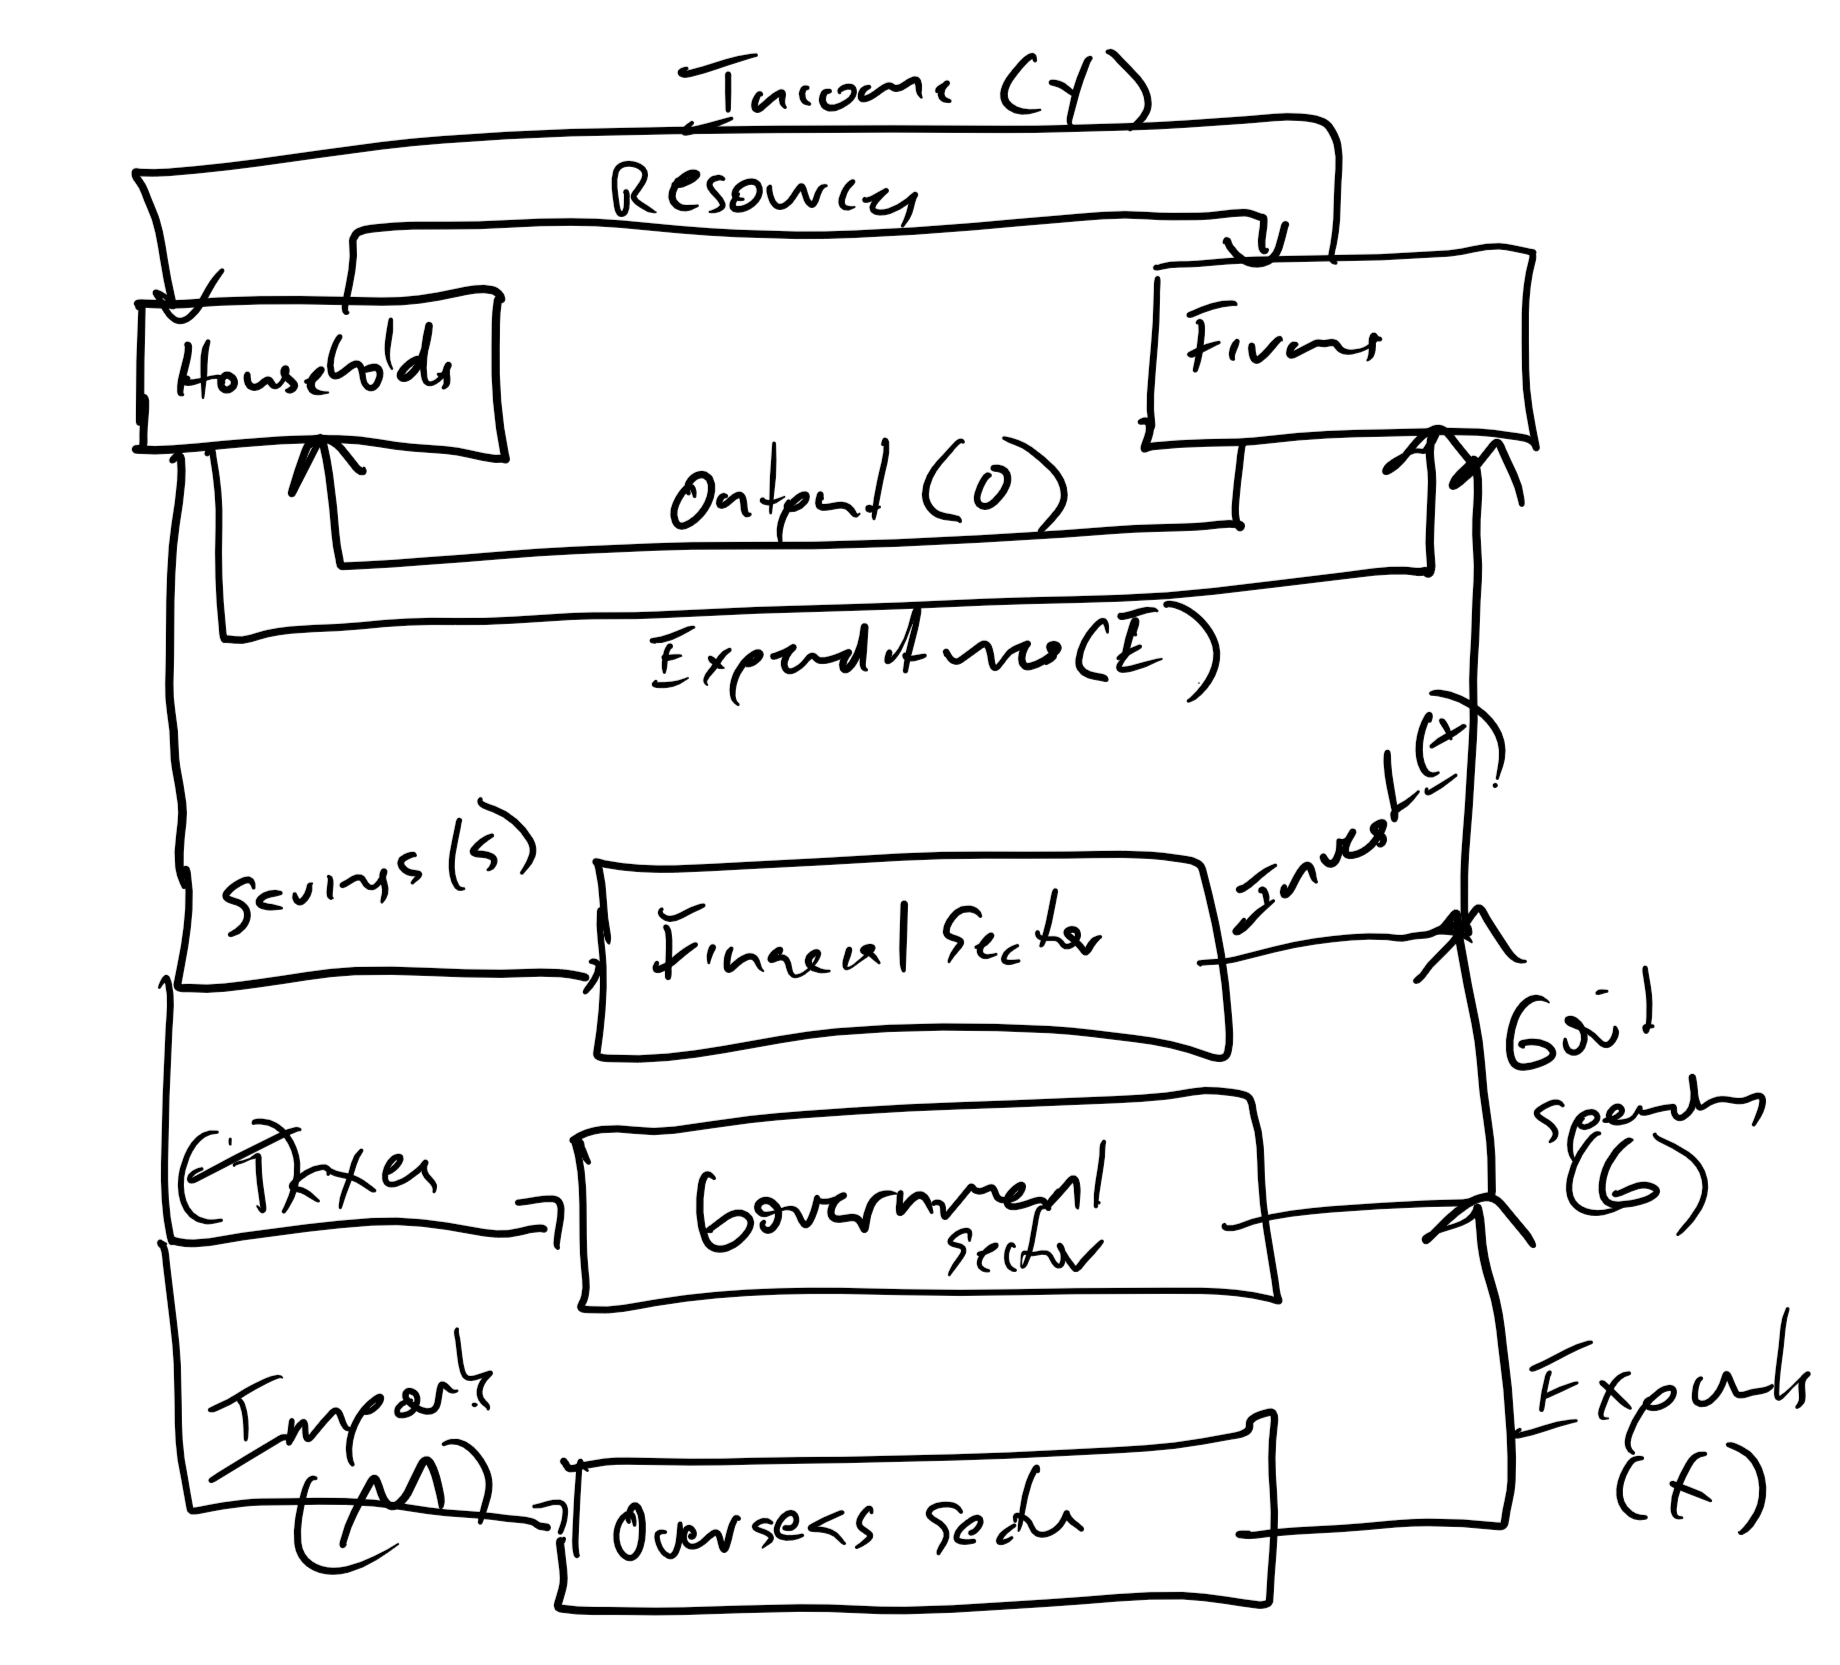 Income (Y)
Resources
Households
Firms
Output (O)
Expenditures (E)
Savings (S)
Financial Sector
Invest (I)
Gov't
Spending
(G)
(T)axes
Government
Sector
Imports
(M)
Overseas Sector
Exports
(X)